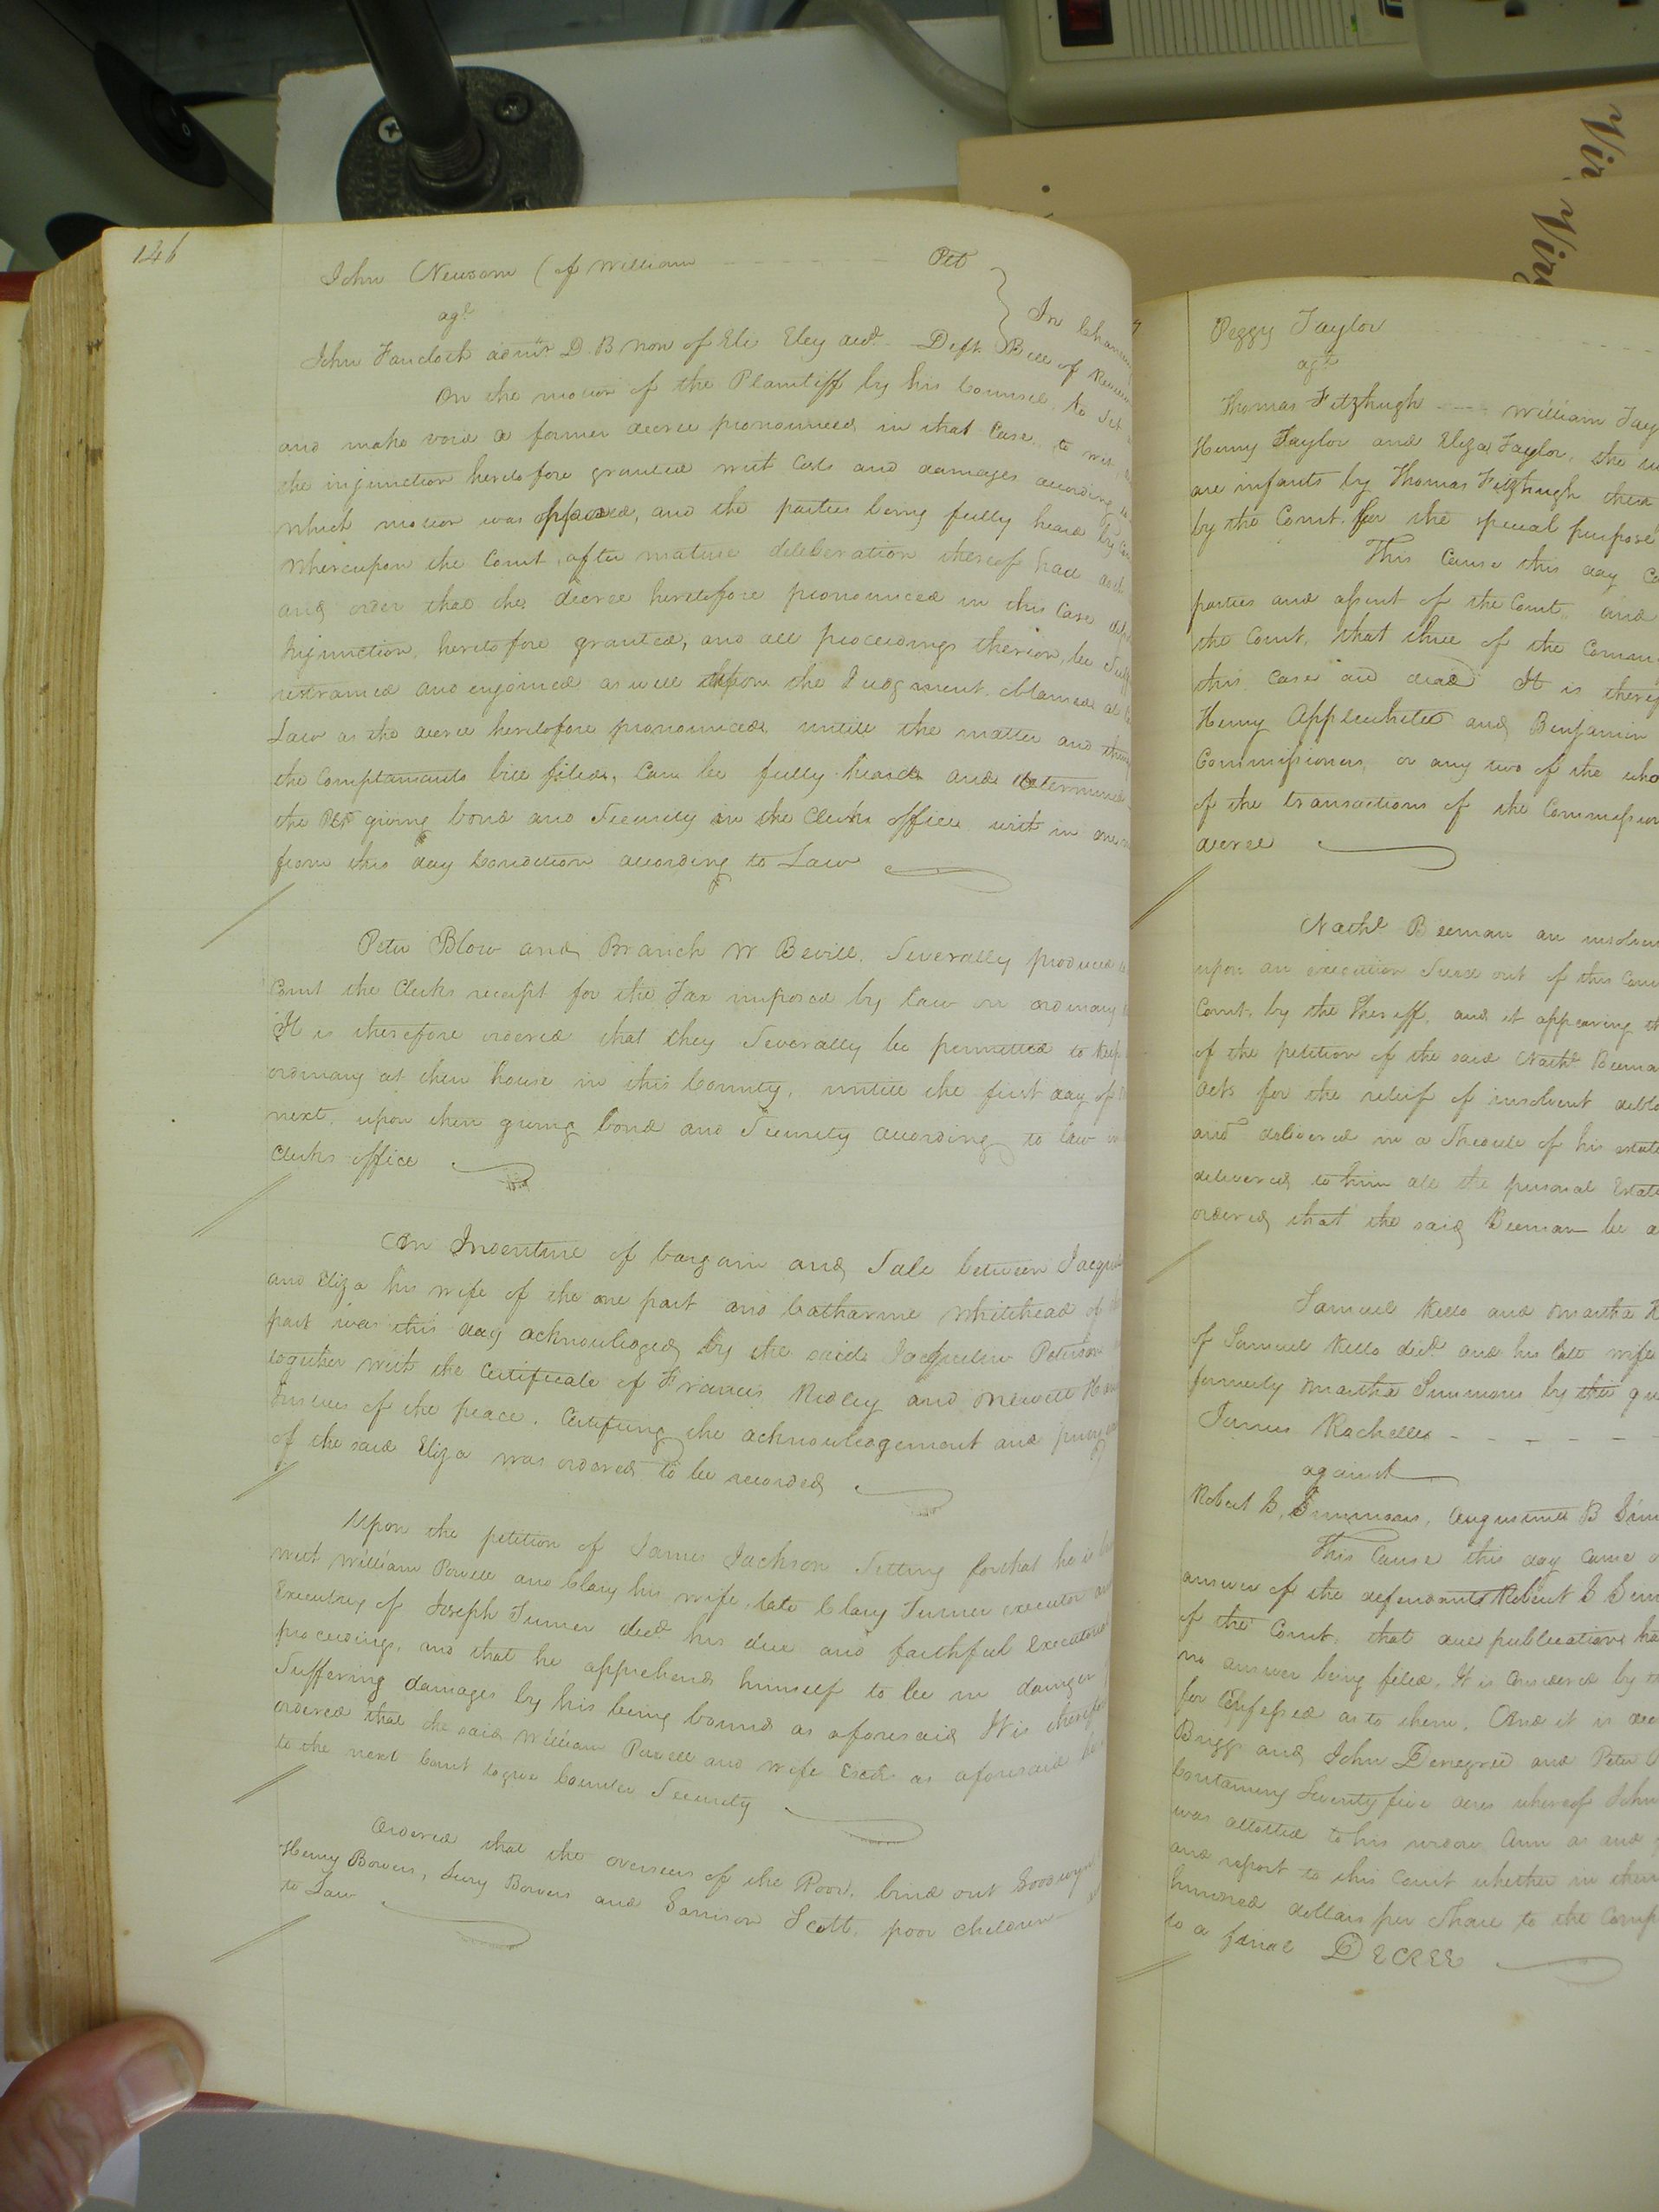 146
John Newsom (of William - - - - - - Plt
agt
John Fauclock admr D. B non of Eli Eley decd - Deft
In Chancery
Bill of
On the motion of the Plaintiff by his Counsel, to Set
and make void a former decree pronounced in that Case, to wit,
the injunction heretofore granted with Costs and damages according to
which motion was opposed, and the parties being fully heard by
Whereupon the Court, after mature deliberation thereof had
and order that the decree heretofore pronounced in this Case
Injunction, heretofore granted, and all proceedings thereon, be
restrained and enjoined as well upon the Judgment Obtained at
Law as the decree heretofore pronounced, untill the matter and things
the Complainants bill filed, Can be fully heard and determined
the Plt giving bond and Security in the Clerks office with in one
from this day Condition according to Law
Peter Blow and Branch W Bevill, Severally produced
Court the Clerks receipt for the Tax imposed by Law on ordinary
It is therefore ordered that they Severally be permitted to keep
ordinary at their house in this County, untill the first day of
next, upon their giving bond and Security according to law
Clerks office
An Indenture of bargain and Sale between
and Eliza his wife of the one part and Catharine Whitehead of
part was this day acknowledged by the said Jacquelin Peterson
together with the Certificate of Francis Ridley and Newitt
Justices of the peace, Certifying the acknowledgement and privy
of the said Eliza was ordered to be recorded
Upon the petition of James Jackson Setting forthat he is
with William Powell and Clary his wife, late Clary Turner executor
Executrix of Joseph Turner decd his due and faithful Executorial
proceedings, and that he apprehends himself to be in danger
Suffering damages by his being bound as aforesaid It is therefore
ordered that the said William Powell and wife Exors as aforesaid
to the next Court to give Counter Security
Ordered that the overseers of the Poor, bind out Goodwyn
Henry Bowers, Sucry Bowers and Garrison Scott, poor children
to Law
Peggy Taylor
agt
Thomas Fitzhugh - - - William
Henry Taylor and Eliza Taylor, the
are infants by Thomas Fitzhugh their
by the Court for the special purpose
This Cause this day
parties and assent of the Court, and
the Court, that three of the
this Case are dead It is
Henry Applewhite and Benjamin
Commissioners, or any two of the
of the transactions of the
decree
Nathl Beeman an
upon an execution Sued out of this
Court, by the Sheriff, and it appearing
of the petition of the said Nathl
acts for the relief of insolvent
and delivered in a Shedule of his
delivered to him all the personal
ordered that the said Beeman be
Samuel Kello and Martha
of Samuel Kello decd and his late wife
formerly Martha Simmons by this
James Rochelle - - - -
against
Robert B. Simmons, Augustine B
This Cause this day came
answer of the defendants Robert B
of the Court, that due publications
no answer being filed, It is Considered by
for Confessed as to them, And it is
Briggs and John Denegre and Peter
Containing Seventy five acres whereof John
was allotted to his widow Ann as
and report to this Court whether in
hundred dollars per Share to the
to a final DECREE
Vir
Vir